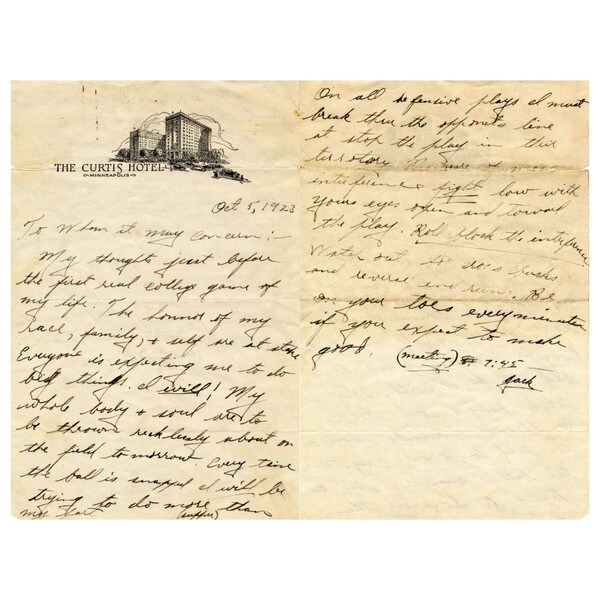 THE CURTIS HOTEL
MINNEAPOLIS
Oct 5, 1923
To Whom it may concern:-
My thoughts just before
the first real college game of
my life. The honnor of my
race, family, & self are at stake
Everyone is expecting me to do
big things. I will! My
whole body & soul are to
be thrown recklessly about on
the field tomorrow. Every time
the ball is snapped I will be
trying to do more than
my part (supper)
On all defensive plays I must
break thru the oppon line
at stop the play in their
terrotory. Beware of mass
interference fight low with
your eyes open and toward
the play. Roll block the interference
Watch out for cross bucks
and reverse end runs. Be
on your toes every minute
if you expect to make
good.
(meeting) 7:45
Jack